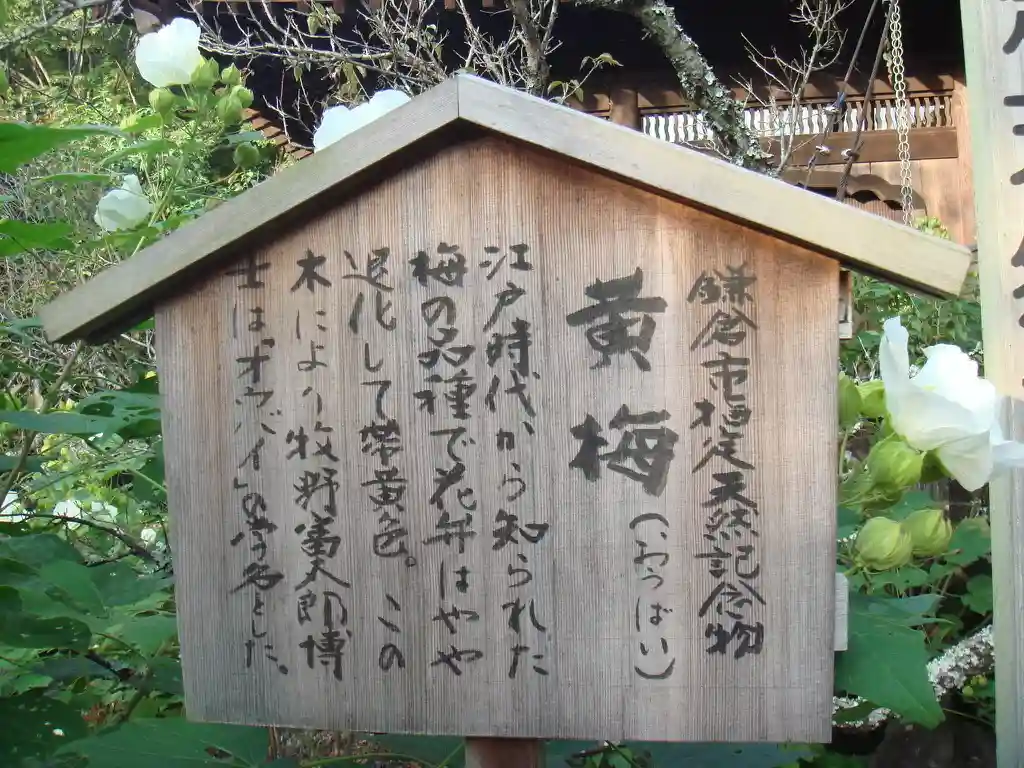 鎌倉市指定天然記念物
黄梅
(おうばい)
江戸時代から知られた
梅の品種で花弁はやや
退化して帯黄色。この
木により牧野富太郎博
士は「オウバイ」の学名とした。